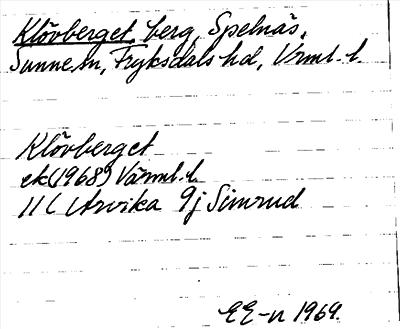 Klövberget, berg, Spelnäs,
Sunne sn, Fryksdals hd, Vrml. l.
Klövberget
ek (1968) Värml. l.
11 C Arvika 9j Simrud
EE-n 1969.